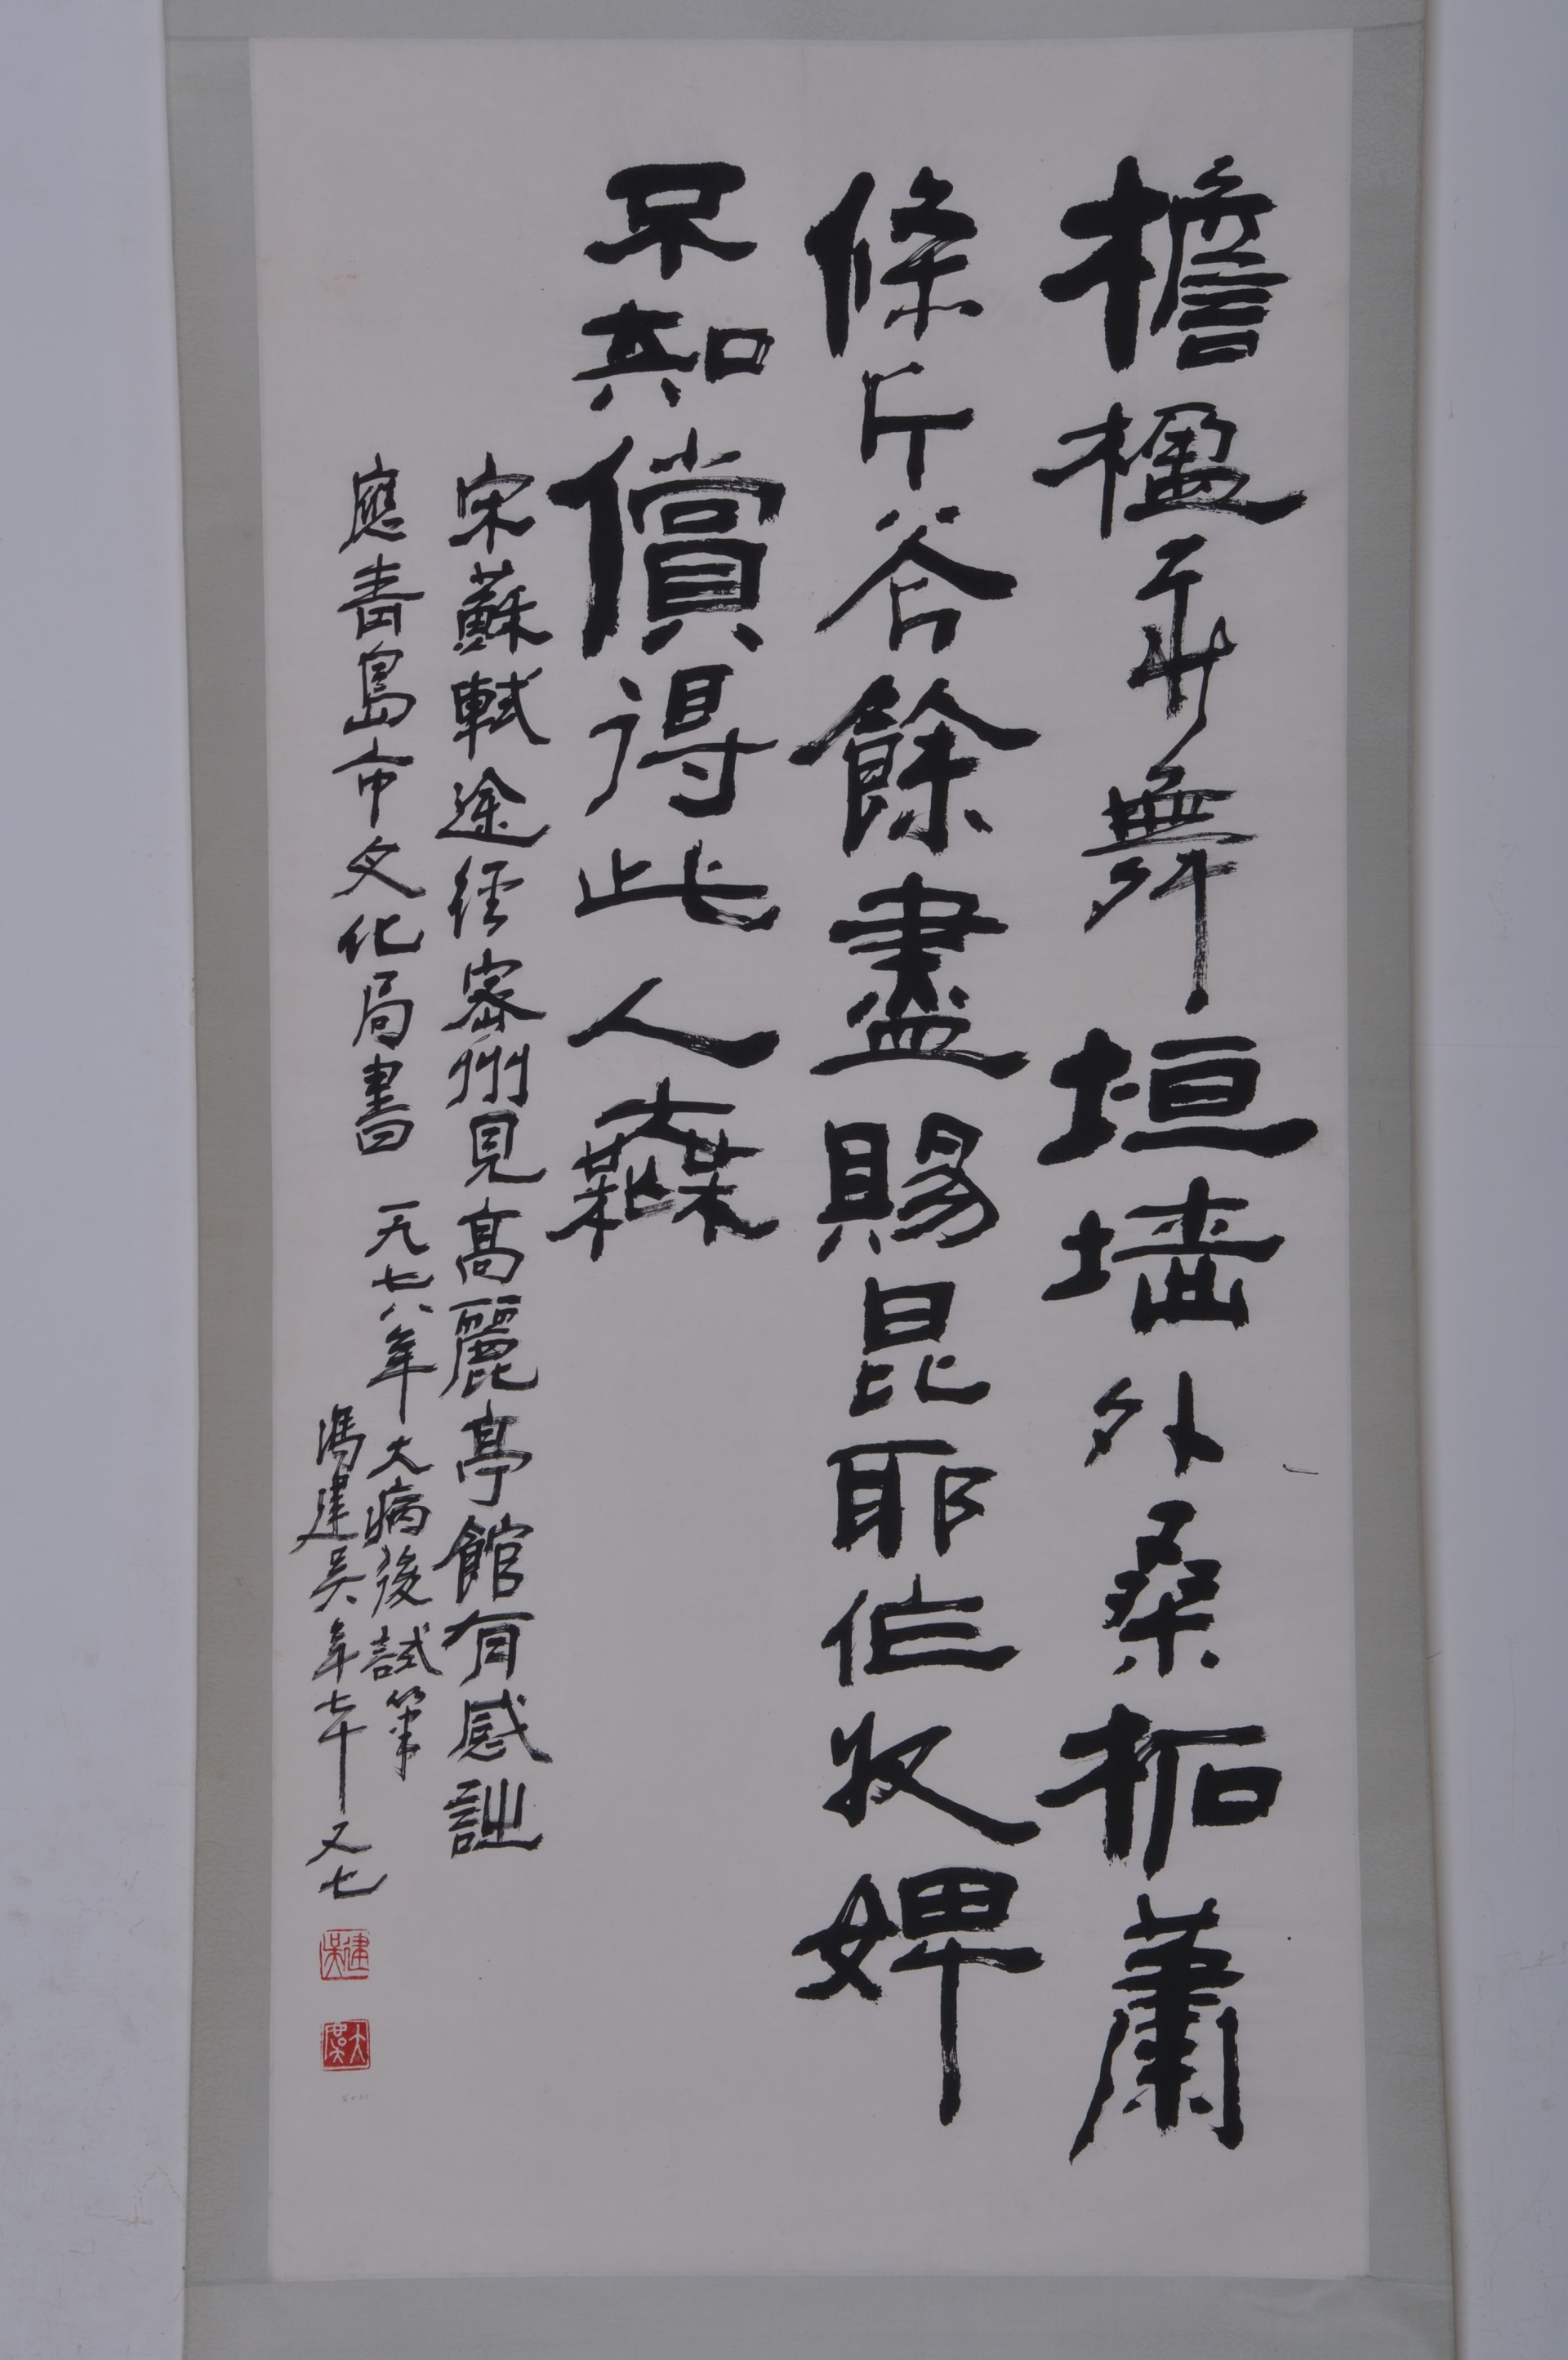 檐楹飛舞垣墙外桑柘蕭
條斤斧餘盡賜昆耶作奴婢
不知償得此人橆
宋蘇軾途徑密州見高麗亭館有感詩
應青島市文化局書 一九七八年大病後試筆
馮建吳年七十又七
建吳